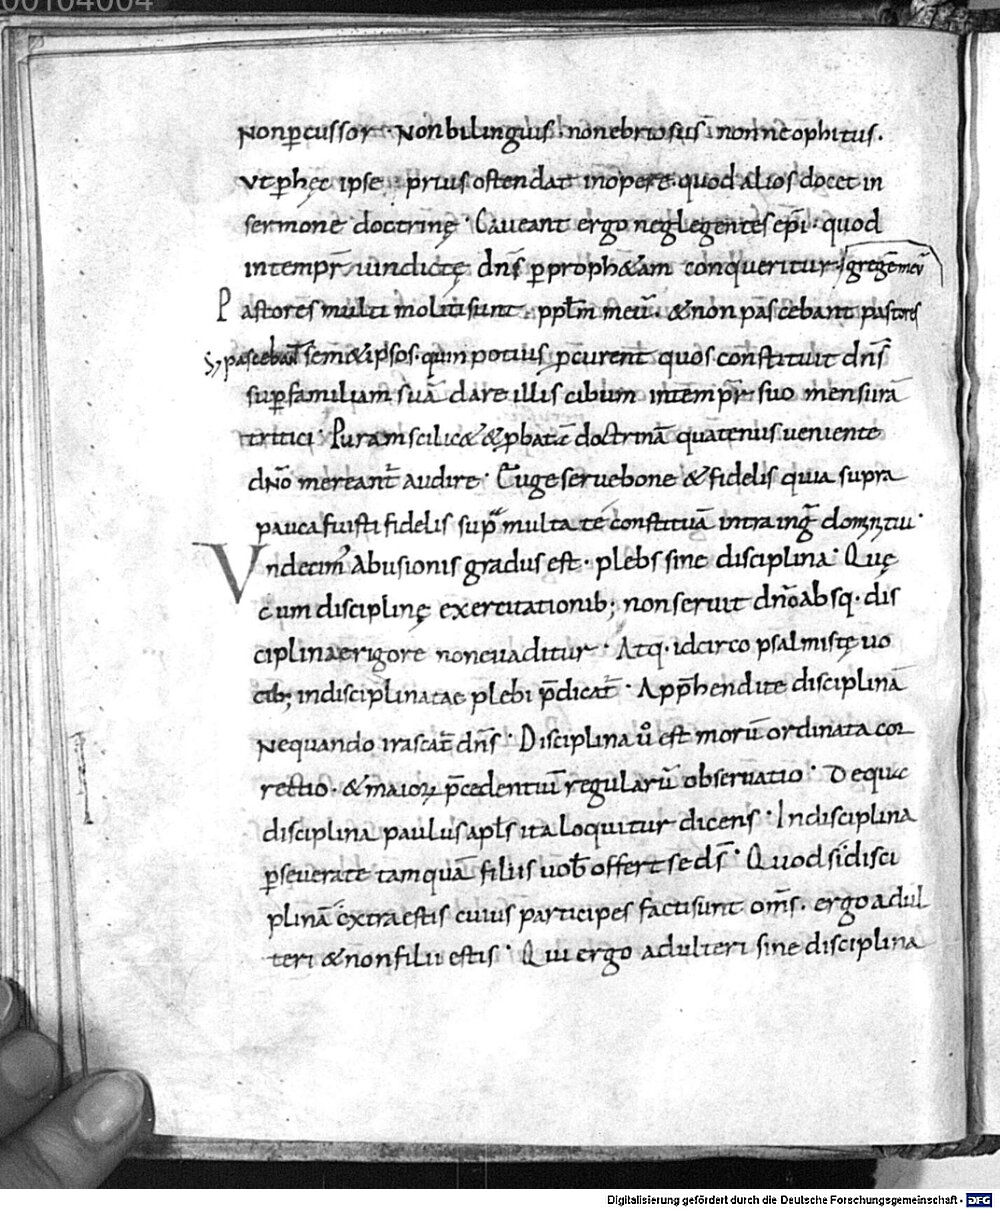 00104004
non ꝑcussor · Non bilinguis · non ebriosus · non neophitus ·
vt ꝑ hęc ipse prius ostendat in oꝑere · quod alios docet in
sermone doctrinę · Caueant ergo neglegentes ep̄i · quod
in temp̄r uindictę dn̄s ꝑ proph&am conqueritur · gregē meū
Pastores multi moliti sunt · ppl̄m meū · & non pascebant pastores
s; pascebant sem&ipsos · quin potius ꝓcurent quos constituit dn̄s
suꝑ familiam suā dare illis cibum in temp̄r suo mensurā
tritici · Puram scilic& & ꝓbatā doctrinā quatenus ueniente
dn̄o mereant̄ audire · Euge serue bone & fidelis quia supra
pauca fuisti fidelis sup̄ multa te constituā intra in ḡ dom̄ tui ·
Vndecim' Abusionis gradus est · plebs sine disciplina · Quę
cum disciplinę exercitationib; non seruit dn̄o absq · dis
ciplinae rigore non euaditur · Atq · idcirco psalmistę uo
cib; indisciplinatae plebi p̄dicat̄ · App̄hendite disciplinā
Ne quando irascat̄ dn̄s · Disciplina ů est morū ordinata cor
rectio · & maioꝝ p̄cedentiū regularū obseruatio · De qua
disciplina paulus apl̄s ita loquitur dicens · In disciplina
ꝑseuerate tamquā filiis uob̄ offert se d̄s · Quod si disci
plinā extra estis cuius participes facti sunt om̄s · ergo adul
teri & non filii estis · Qui ergo adulteri sine disciplina
Digitalisierung gefördert durch die Deutsche Forschungsgemeinschaft - DFG